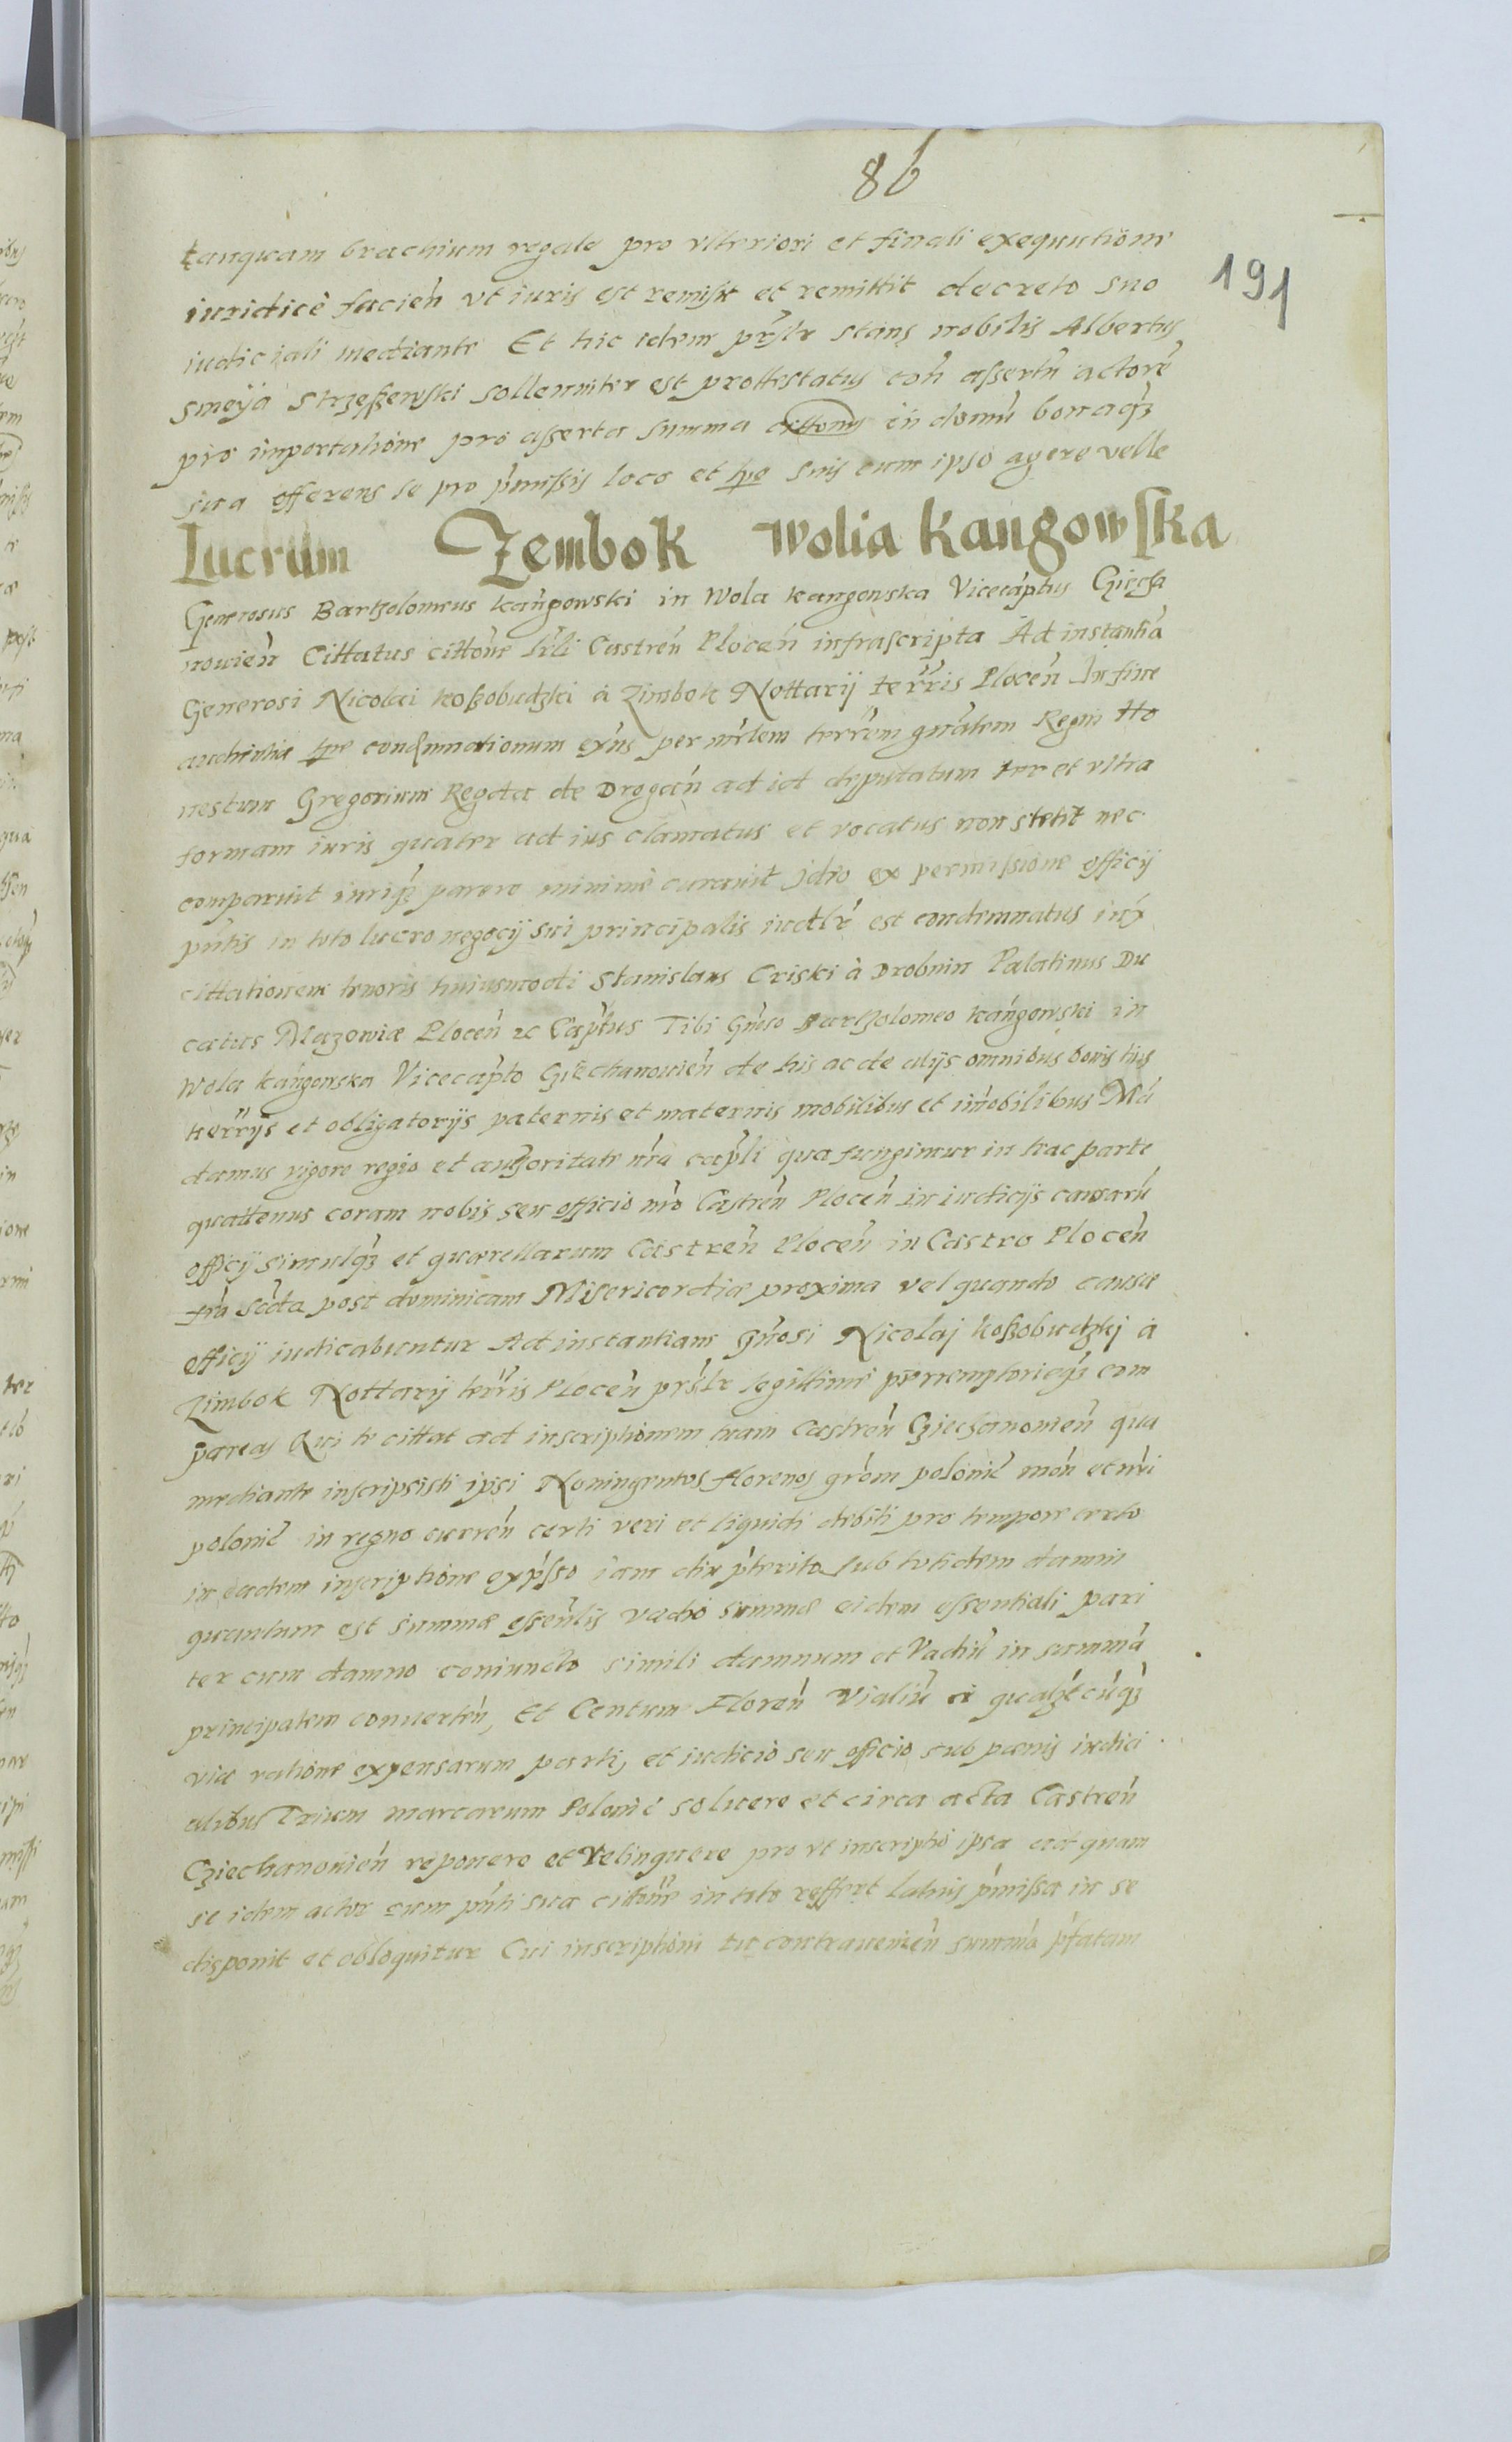 86
191
tanquam brachium regale pro vlteriori et finali exequutione
iuridice facien vt iuris est remisit et remittit decreto suo
iudiciali mediante Et hic idem pr̃slr stans nobilis Albertus
smeya Strzeßewski sollenniter est prottestatus coñ assertũ actorẽ
pro importatione pro asserta summa cittonis in domũ bonaqʒ
sua offerens se pro p̃missis loco et tpe suis cum ipso agere velle
Lucrum Zembok Wolia Kangowska
Generosus Bartholomeus kangowski in Wola kangowska Vicecaptus Cziecha
nowien Cittatus cittone lr̃li Castren Plocen infrascripta Ad instantia
Generosi Nicolai koßobudzki a Zimbok Nottarij terr̃ris Plocen In fine
audientiæ tpe condemnationum exñs per mr̃lem terr̃em gnãlem Regni Ho
nestum Gregorium Regata de Drogan ad id deputatum ter et vltra
formam iuris quater ad ius clamatus et vocatus non stetit nec
comparuit iuriqʒ parere minime curauit jdeo ex permissione officij
pñtis in toto lucro negocij sui principalis iudlr̃ est condemnatus iux
cittationem tenoris huiusmodi Stanislaus Criski à Drobnin Palatinus Du
catus Mazowiæ Plocen ꝛc Captus Tibi Gñso Bartholomeo kangowski in
Wola kangowska Vicecapto Cziechanowien de his ac de alijs omnibus bonis tuis
hær̃rijs et obligatorijs paternis et maternis mobilibus et im̃obilibus Mã
damus vigore regio et authoritate nr̃a capli qua fungimur in hac parte
quattenus coram nobis seu officio nr̃o Castren Plocen in iudicijs causarũ
officij simulqʒ et quærellarum Castren Plocen in Castro Plocen
fria scda post dominicam Misericordiæ proxima vel quando causæ
officij iudicabuntur Ad instantiam Gñosi Nicolaj koßobudzkj à
Zimbok Nottarij terr̃ris Plocen pr̃slr legittime peremptorieqʒ com
pareas Qui te cittat ad inscriptionem tuam Castren Cziechanowien qua
mediante inscripsisti ipsi Noningentos florenos grom polonic mon et nr̃i
polonic in regno curren certi veri et liquidi debiti pro tempore certo
in eadem inscriptione exp̃sso iam diu p̃terito sub totidem damni
quantum est summæ essenlis vadio summæ eidem essentiali pari
ter cum damno coniuncto simili damnum et Vadiũ in summã
principalem conuerten, Et Centum Floren Vialiũ a qualʒtcũqʒ
viæ ratione expensarum parti, et iudicio seu officio sub pænis iudici
alibus Trium marcarum Polonic soluere et circa acta Castren
Cziechanowien reponere et relinquere pro vt inscriptio ipsa ad quam
se idem actor cum pñti sua cittone in toto reffert latius p̃missa in se
disponit et obloquitur Cui inscriptioni tu contraueniẽn summã p̃fatam